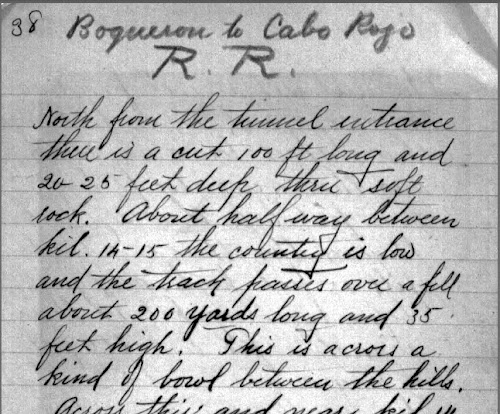 38 Boqueron to Cabo Rojo
R. R.
North from the tunnel entrance
there is a cut 100 ft long and
20-25 feet deep thru soft
rock. About half way between
kil. 14-15 the country is low
and the track passes over a fill
about 200 yards long and 35
feet high. This is across a
kind of bowl between the hills.
Across this and near kil 14